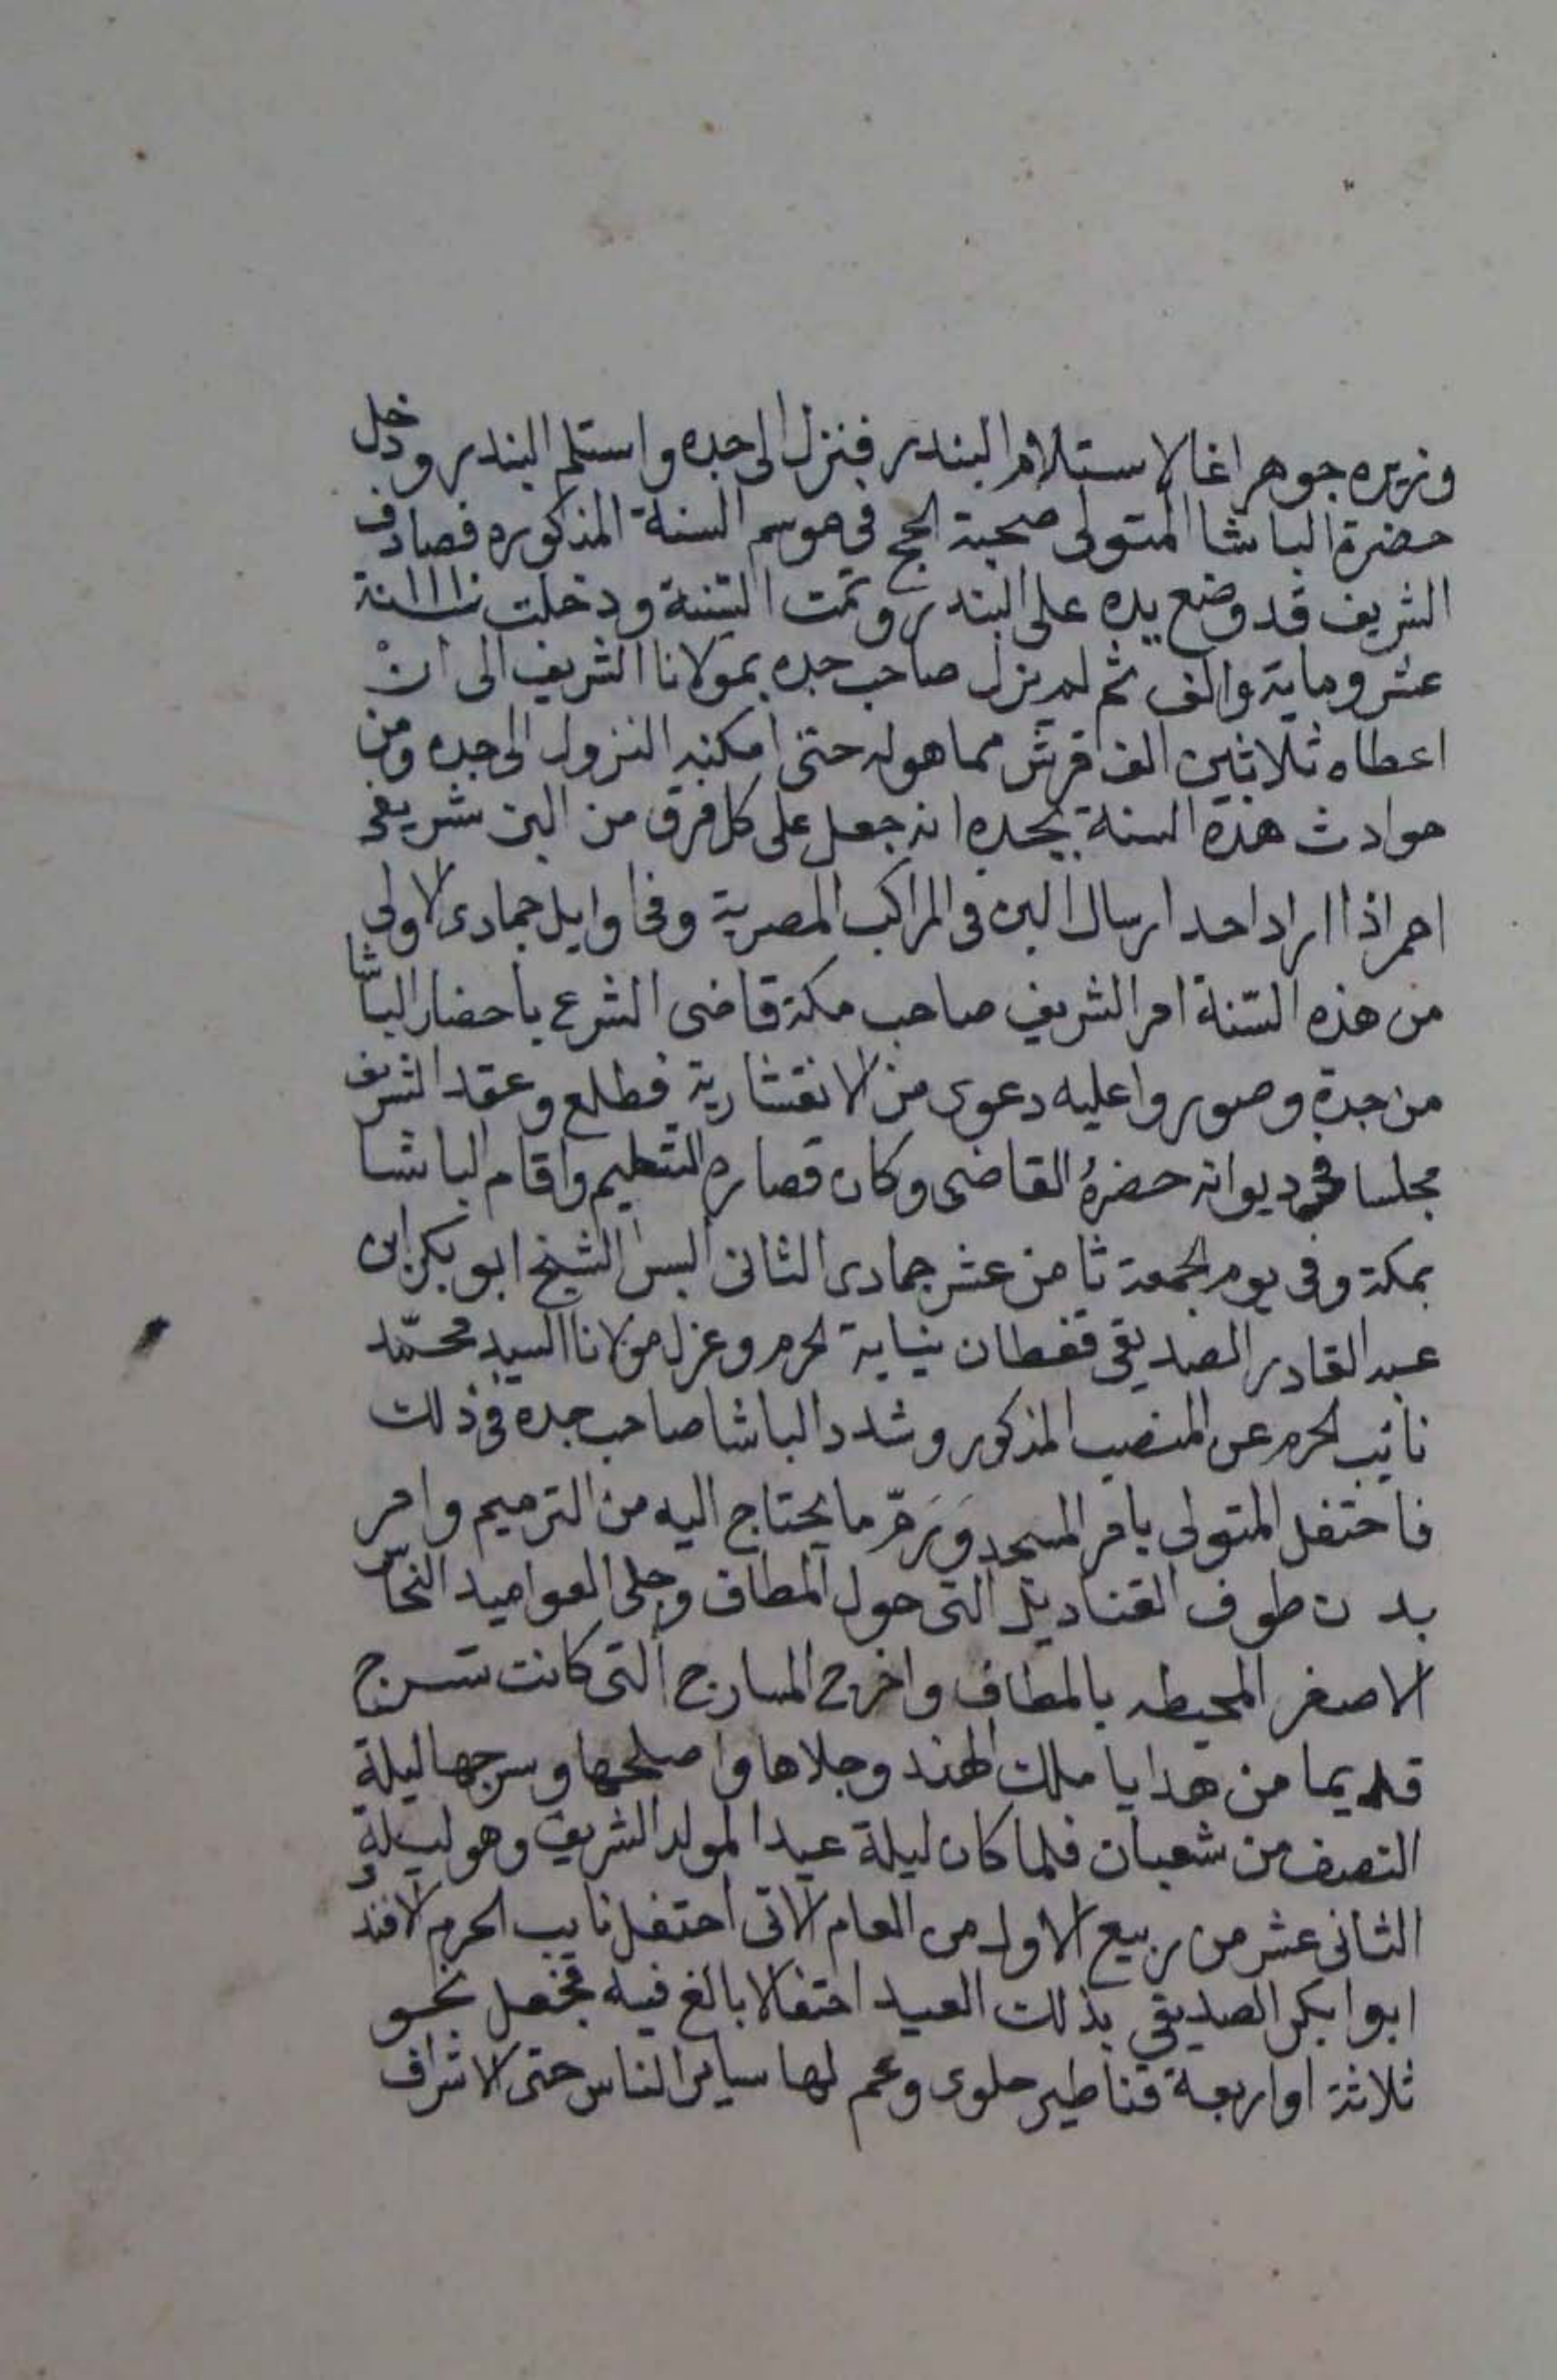 وزيره جوهر اغا لاستلام البندر فنزل الى جده واستلم البندر ودخل
حضرة الباشا المتولى صحبة الحج في موسم السنة المذكوره فصادف
الشريف قد وضع يده على البندر وتمت السّنة ودخلت سنة
عشر وماية والف ثم لم يزل صاحب جده بمولانا الشريف الى انْ
اعطاه ثلاثين الف قرش مما هوله حتى امكنه النزول الى جده ومن
حوادث هذه السنة بجده انه جعل على كل فرق من البن شريفى
احمر اذا اراد احد ارسال البن فى المراكب المصرية وفى اوايل جمادى الاولى
من هذه السّنة امر الشريف صاحب مكة قاضى الشرع باحضار الباشا
من جدة وصوروا عليه دعوى من الانقشارية فطلع وعقد الشريف
مجلسا فى ديوانه حضرهُ القاضى وكان قصاره التعظيم واقام الباشا
بمكة وفى يوم الجمعة ثامن عشر جمادى الثانى البس الشيخ ابو بكر ابن
عبد القادر الصديقى قفطان نيابة الحرم وعزل مولانا السيد محمّد
نائيب الحرم عن المنصب المذكور وشدد الباشا صاحب جده فى ذلك
فاحتفل المتولى بامر المسجد وَرَمّ ما يحتاج اليه من الترميم وامر
بدهن طوف القناديل التى حول المطاف وجلى العواميد النحاس
الاصفر المحيطه بالمطاف واخرج المسارج التى كانت تسرج
قديما من هدايا ملك الهند وجلاها واصلحها وسرجها ليلة
النصف من شعبان فلما كان ليلة عيد المولد الشريف وهو ليلة
الثانى عشر من ربيع الاول من العام الاتى احتفل نايب الحرم الافندى
ابوا بكر الصديقي بذلك العيد احتفالا بالغ فيه فجعل نحو
ثلاثة او اربعة قناطير حلوى وعم لها ساير الناس حتى الاشراف